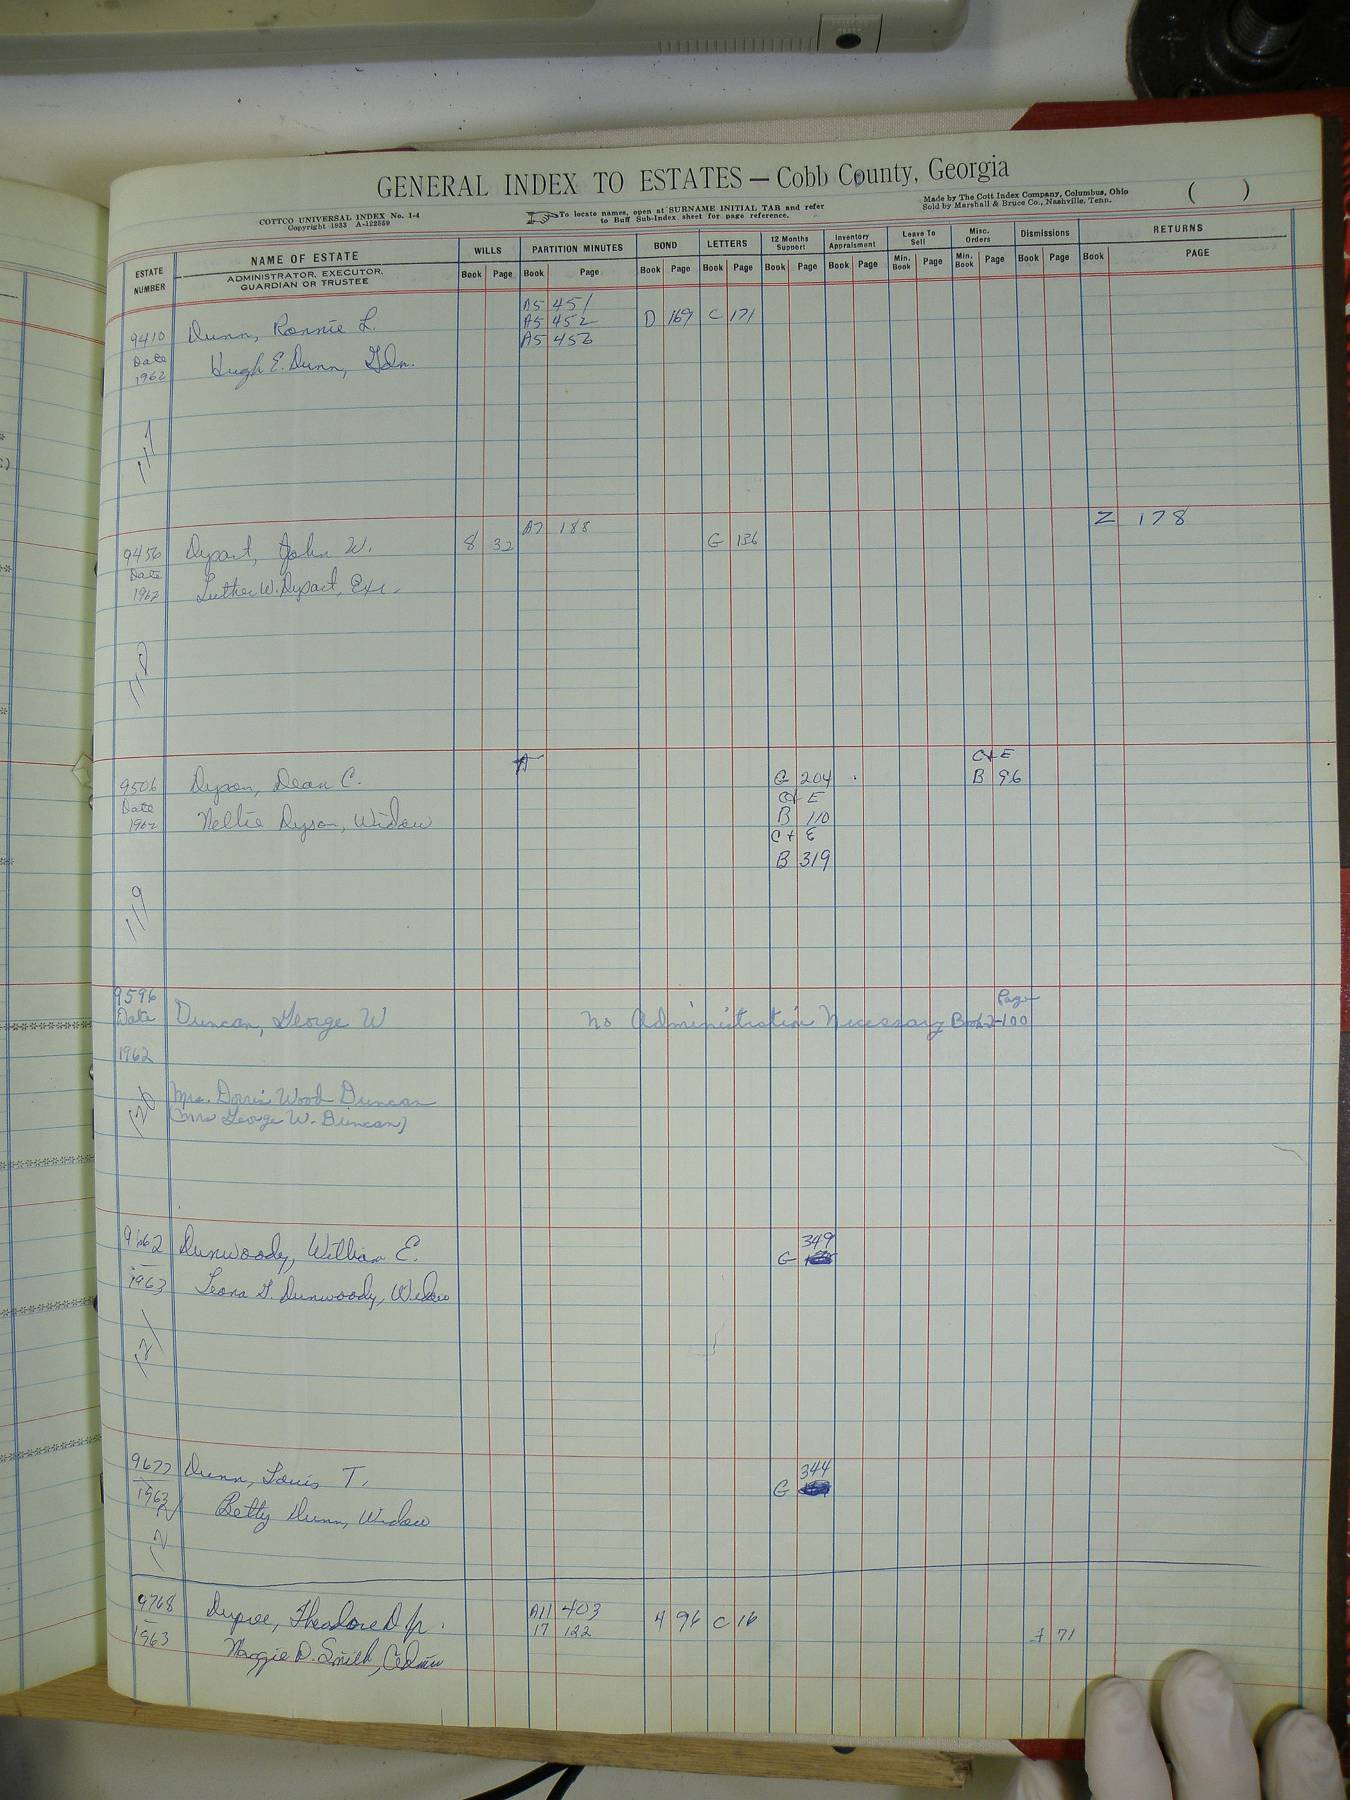 GENERAL INDEX TO ESTATES — Cobb County, Georgia
COTTCO UNIVERSAL INDEX No. 1-4
Copyright 1933 A-122559
To locate names, open at SURNAME INITIAL TAB and refer
to Buff Sub-Index sheet for page reference.
Made by The Cott Index Company, Columbus, Ohio
Sold by Marshall & Bruce Co., Nashville, Tenn.
( )
ESTATE NUMBER
NAME OF ESTATE
ADMINISTRATOR, EXECUTOR,
GUARDIAN OR TRUSTEE
WILLS PARTITION MINUTES BOND LETTERS 12 Months Support Inventory Appraisment Leave To Sell Misc. Orders Dismissions RETURNS
Book Page Book Page Book Page Book Page Book Page Book Page Min. Book Page Min. Book Page Book Page Book PAGE
A5 451
9410 Dunn, Ronnie L. A5 452 D 169 C 171
A5 453
Date
1962 Hugh E. Dunn, Gdn.
117
A7 188 Z 178
9456 Dysart, John W. 8 32 G 136
Date
1962 Luther W. Dysart, Exr.
118
C+E
9506 Dyson, Dean C. G 204 B 96
Date C+E
1962 Nellie Dyson, Widow B 110
C+E
B 319
119
9596
Date Duncan, George W No Administration Necessary Book 2-100
Page
1962
Mrs. Dorris Wood Duncan
(Mrs George W. Duncan)
120
349
9662 Dunwoody, William E. G
1963 Leona T. Dunwoody, Widow
121
344
9677 Dunn, Louis T. G
1963 Betty Dunn, Widow
122
9768 Dupree, Theodore D Jr. A11 403 4 96 C 16
17 122
1963 Maggie D. Smith, Admx 71